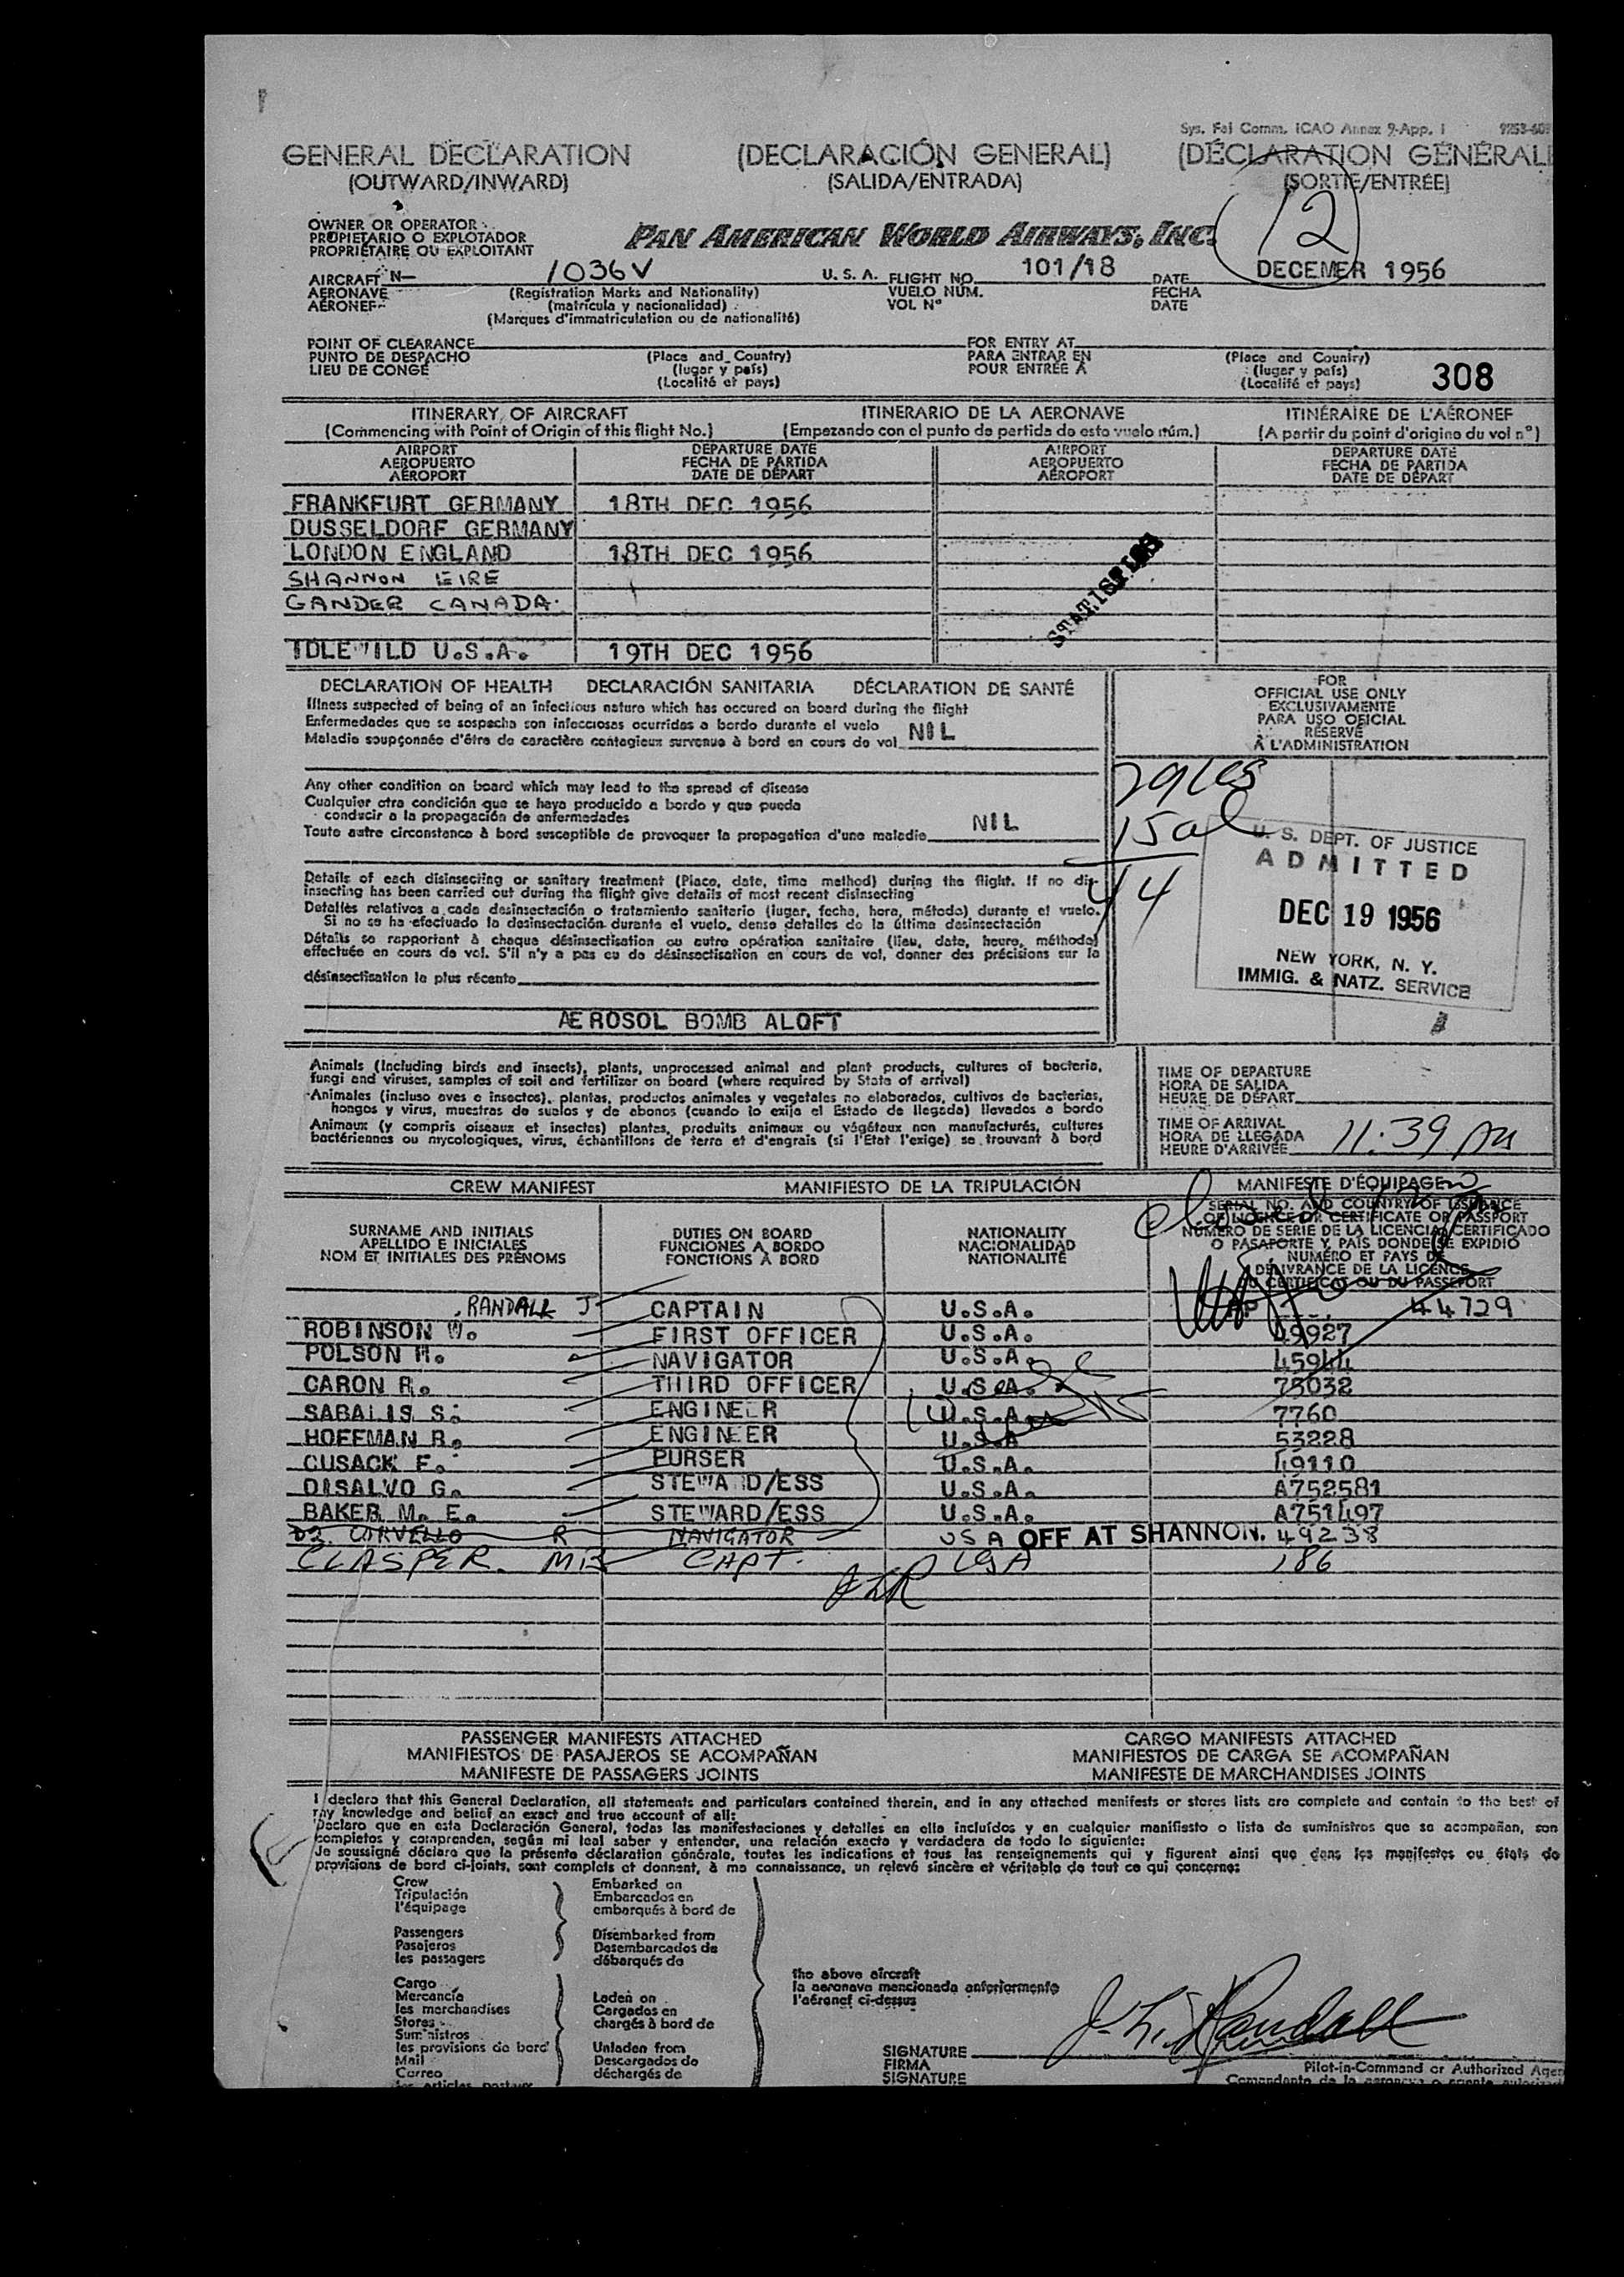 Sys. Fal Comm. ICAO Annex 9-App. I
GENERAL DECLARATION (DECLARACIÓN GENERAL) (DÉCLARATION GÉNÉRAL
(OUTWARD/INWARD) (SALIDA/ENTRADA) (SORTIE/ENTRÉE)
12
OWNER OR OPERATOR
PROPIETARIO O EXPLOTADOR
PROPRIÉTAIRE OU EXPLOITANT
PAN AMERICAN WORLD AIRWAYS, INC.
AIRCRAFT N— 1036V U. S. A. FLIGHT NO. 101/18 DATE DECEMER 1956
AERONAVE (Registration Marks and Nationality) VUELO NÚM. FECHA
AÉRONEF (matrícula y nacionalidad) VOL Nº DATE
(Marques d'immatriculation ou de nationalité)
POINT OF CLEARANCE FOR ENTRY AT
PUNTO DE DESPACHO (Place and Country) PARA ENTRAR EN (Place and Country)
LIEU DE CONGÉ (lugar y país) POUR ENTRÉE À (lugar y país)
(Localité et pays) (Localité et pays)
308
ITINERARY OF AIRCRAFT ITINERARIO DE LA AERONAVE ITINÉRAIRE DE L'AÉRONEF
(Commencing with Point of Origin of this flight No.) (Empezando con el punto de partida de esto vuelo núm.) (A partir du point d'origine du vol nº)
AIRPORT DEPARTURE DATE AIRPORT DEPARTURE DATE
AEROPUERTO FECHA DE PARTIDA AEROPUERTO FECHA DE PARTIDA
AÉROPORT DATE DE DÉPART AÉROPORT DATE DE DÉPART
FRANKFURT GERMANY 18TH DEC 1956
DUSSELDORF GERMANY
LONDON ENGLAND 18TH DEC 1956
SHANNON EIRE
GANDER CANADA
IDLEWILD U.S.A. 19TH DEC 1956
STATISTICS
DECLARATION OF HEALTH DECLARACIÓN SANITARIA DÉCLARATION DE SANTÉ
Illness suspected of being of an infectious nature which has occured on board during the flight
Enfermedades que se sospecha son infecciosas ocurridas a bordo durante el vuelo
Maladie soupçonnée d'être de caractère contagieux survenue à bord en cours de vol NIL
FOR
OFFICIAL USE ONLY
EXCLUSIVAMENTE
PARA USO OFICIAL
RÉSERVÉ
À L'ADMINISTRATION
Any other condition on board which may lead to the spread of disease
Cualquier otra condición que se haya producido a bordo y que pueda
conducir a la propagación de enfermedades
Toute autre circonstance à bord susceptible de provoquer la propagation d'une maladie NIL
15al
44
U. S. DEPT. OF JUSTICE
ADMITTED
DEC 19 1956
NEW YORK, N. Y.
IMMIG. & NATZ. SERVICE
Details of each disinsecting or sanitary treatment (Place, date, time method) during the flight. If no dis-
insecting has been carried out during the flight give details of most recent disinsecting
Detalles relativos a cada desinsectación o tratamiento sanitario (lugar, fecha, hora, método) durante el vuelo.
Si no se ha efectuado la desinsectación durante el vuelo, dense detalles de la última desinsectación
Détails se rapportant à chaque désinsectisation ou autre opération sanitaire (lieu, date, heure, méthode)
effectuée en cours de vol. S'il n'y a pas eu de désinsectisation en cours de vol, donner des précisions sur la
désinsectisation la plus récente
AEROSOL BOMB ALOFT
Animals (Including birds and insects), plants, unprocessed animal and plant products, cultures of bacteria,
fungi and viruses, samples of soil and fertilizer on board (where required by State of arrival)
Animales (incluso aves e insectos), plantas, productos animales y vegetales no elaborados, cultivos de bacterias,
hongos y virus, muestras de suelos y de abonos (cuando lo exija el Estado de llegada) llevados a bordo
Animaux (y compris oiseaux et insectes) plantes, produits animaux ou végétaux non manufacturés, cultures
bactériennes ou mycologiques, virus, échantillons de terre et d'engrais (si l'Etat l'exige) se trouvant à bord
TIME OF DEPARTURE
HORA DE SALIDA
HEURE DE DÉPART
TIME OF ARRIVAL
HORA DE LLEGADA
HEURE D'ARRIVÉE 11:39
CREW MANIFEST MANIFIESTO DE LA TRIPULACIÓN MANIFESTE D'ÉQUIPAGE
SURNAME AND INITIALS DUTIES ON BOARD NATIONALITY
APELLIDO E INICIALES FUNCIONES A BORDO NACIONALIDAD
NOM ET INITIALES DES PRÉNOMS FONCTIONS À BORD NATIONALITÉ
SERIAL NO. AND COUNTRY OF ISSUANCE
OF LICENCE OR CERTIFICATE OR PASSPORT
NÚMERO DE SERIE DE LA LICENCIA, CERTIFICADO
O PASAPORTE Y PAÍS DONDE SE EXPIDIÓ
NUMÉRO ET PAYS DE
DÉLIVRANCE DE LA LICENCE
DU CERTIFICAT OU DU PASSEPORT
RANDALL J CAPTAIN U.S.A. 44729
ROBINSON W. FIRST OFFICER U.S.A. 49927
POLSON H. NAVIGATOR U.S.A. 45944
CARON R. THIRD OFFICER U.S.A. 75032
SABALIS S. ENGINEER U.S.A. 7760
HOFFMAN R. ENGINEER U.S.A 53228
CUSACK F. PURSER U.S.A. 49110
DISALVO G. STEWARD/ESS U.S.A. A752581
BAKER M. E. STEWARD/ESS U.S.A. A751497
CORVELLO R NAVIGATOR USA OFF AT SHANNON. 49238
CLASPER. MB CAPT. USA 186
PASSENGER MANIFESTS ATTACHED CARGO MANIFESTS ATTACHED
MANIFIESTOS DE PASAJEROS SE ACOMPAÑAN MANIFIESTOS DE CARGA SE ACOMPAÑAN
MANIFESTE DE PASSAGERS JOINTS MANIFESTE DE MARCHANDISES JOINTS
I declare that this General Declaration, all statements and particulars contained therein, and in any attached manifests or stores lists are complete and contain to the best of
my knowledge and belief an exact and true account of all:
Declaro que en esta Declaración General, todas las manifestaciones y detalles en ella incluídos y en cualquier manifiesto o lista de suministros que se acompañan, son
completos y comprenden, según mi leal saber y entender, una relación exacta y verdadera de todo lo siguiente:
Je soussigné déclare que la présente déclaration générale, toutes les indications et tous les renseignements qui y figurent ainsi que dans les manifestes ou états de
provisions de bord ci-joints, sont complets et donnent, à ma connaissance, un relevé sincère et véritable de tout ce qui concerne:
Crew Embarked on
Tripulación Embarcados en
l'équipage embarqués à bord de
Passengers Disembarked from
Pasajeros Desembarcados de
les passagers débarqués de
the above aircraft
la aeronave mencionada anteriormente
l'aéronef ci-dessus
Cargo
Mercancía Laden on
les marchandises Cargados en
Stores chargés à bord de
Suministros
les provisions de bord Unladen from
Mail Descargados de
Correo déchargés de
les articles postaux
J. L. Randall
SIGNATURE
FIRMA Pilot-in-Command or Authorized Agen
SIGNATURE Comandante de la aeronave o agente autorizad